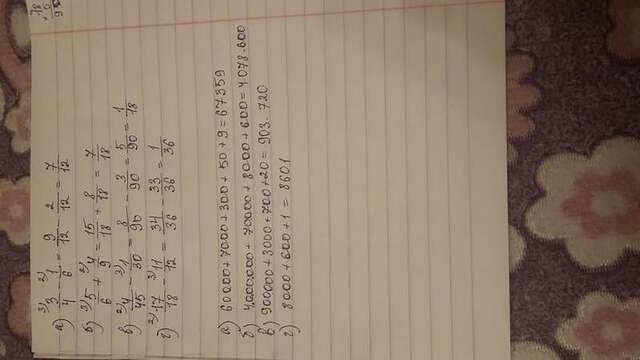 а) ³⁾3/4 - ²⁾1/6 = 9/12 - 2/12 = 7/12
б) ³⁾5/6 + ²⁾4/9 = 15/18 + 8/18 = 7/18
в) ²⁾4/45 - ³⁾1/30 = 8/90 - 3/90 = 5/90 = 1/18
г) ²⁾17/18 - ³⁾11/12 = 34/36 - 33/36 = 1/36
а) 60000 + 7000 + 300 + 50 + 9 = 67359
б) 4.000.000 + 70000 + 8000 + 600 = 4.078.600
в) 900000 + 3000 + 700 + 20 = 903.720
г) 8000 + 600 + 1 = 8601